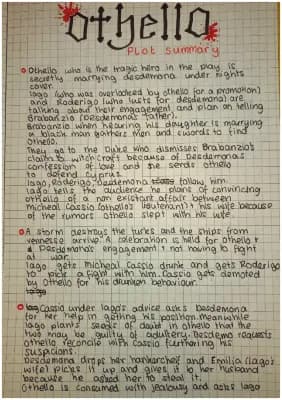 othello
Plot summary
Othello, who is the tragic hero in the play is
secretly marrying desdemona under nights
cover.
Iago (who was overlooked by othello for a promotion)
and Roderigo (who lusts for desdemona) are
talking about their engagement and plan on telling
Brabanzio (Desdemona's father).
Brabanzio when hearing his daughter is marrying
a black man gathers men and swords to find
Othello.
They go to the Duke who dismisses Brabanzio's
claims of witchcraft because of Desdemona's
confession of love and she sends othello
to defend cyprus.
Iago, Roderigo, Desdemona follow him
Iago tells the audience he plans of convincing
othello of a non existant affair between
micheal Cassio (othello's lieutenant) & his wife because
of the rumors othello slept with his wife.
A storm destroys the turks and the ships from
vennesse arrive. A celebration is held for othello &
Desdemona's engagement & not having to fight
at war.
Iago gets micheal Cassio drunk and gets Roderigo
to pick a fight with him. Cassio gets demoted
by Othello for his drunken behaviour.
Cassio under Iago's advice asks desdemona
for her help in getting his position. meanwhile
Iago plants seeds of doubt in othello that the
two may be guilty of adultery. Desdemo requests
othello reconcile with Cassio (furthering his
suspicions.
Desdemona drops her hankerchief and Emilia (Iago's
wife) picks it up and gives it to her husband
because he asked her to steal it.
Othello is consumed with jealousy and asks Iago